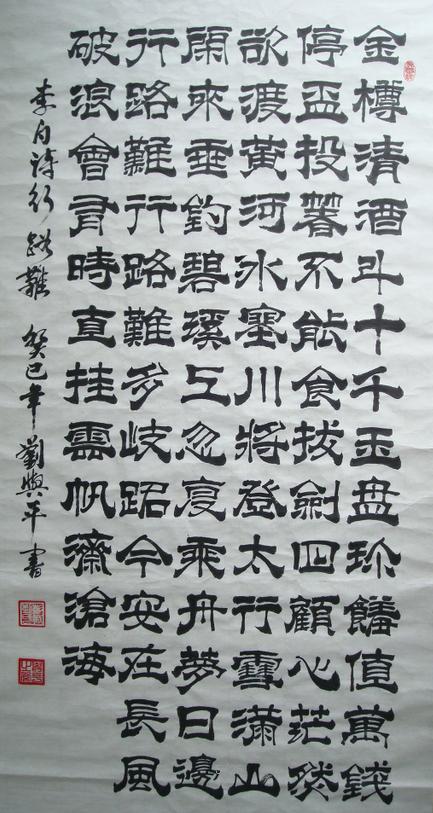 金樽清酒斗十千玉盘珎饈值萬錢
停盃投箸不能食拔劍四顧心茫然
欲渡黃河冰塞川將登太行雪滿山
閑來垂釣碧溪上忽復乘舟夢日邊
行路難行路難多岐路今安在長風
破浪會有時直挂雲帆濟滄海
李白詩行路難 癸巳年 劉興平書